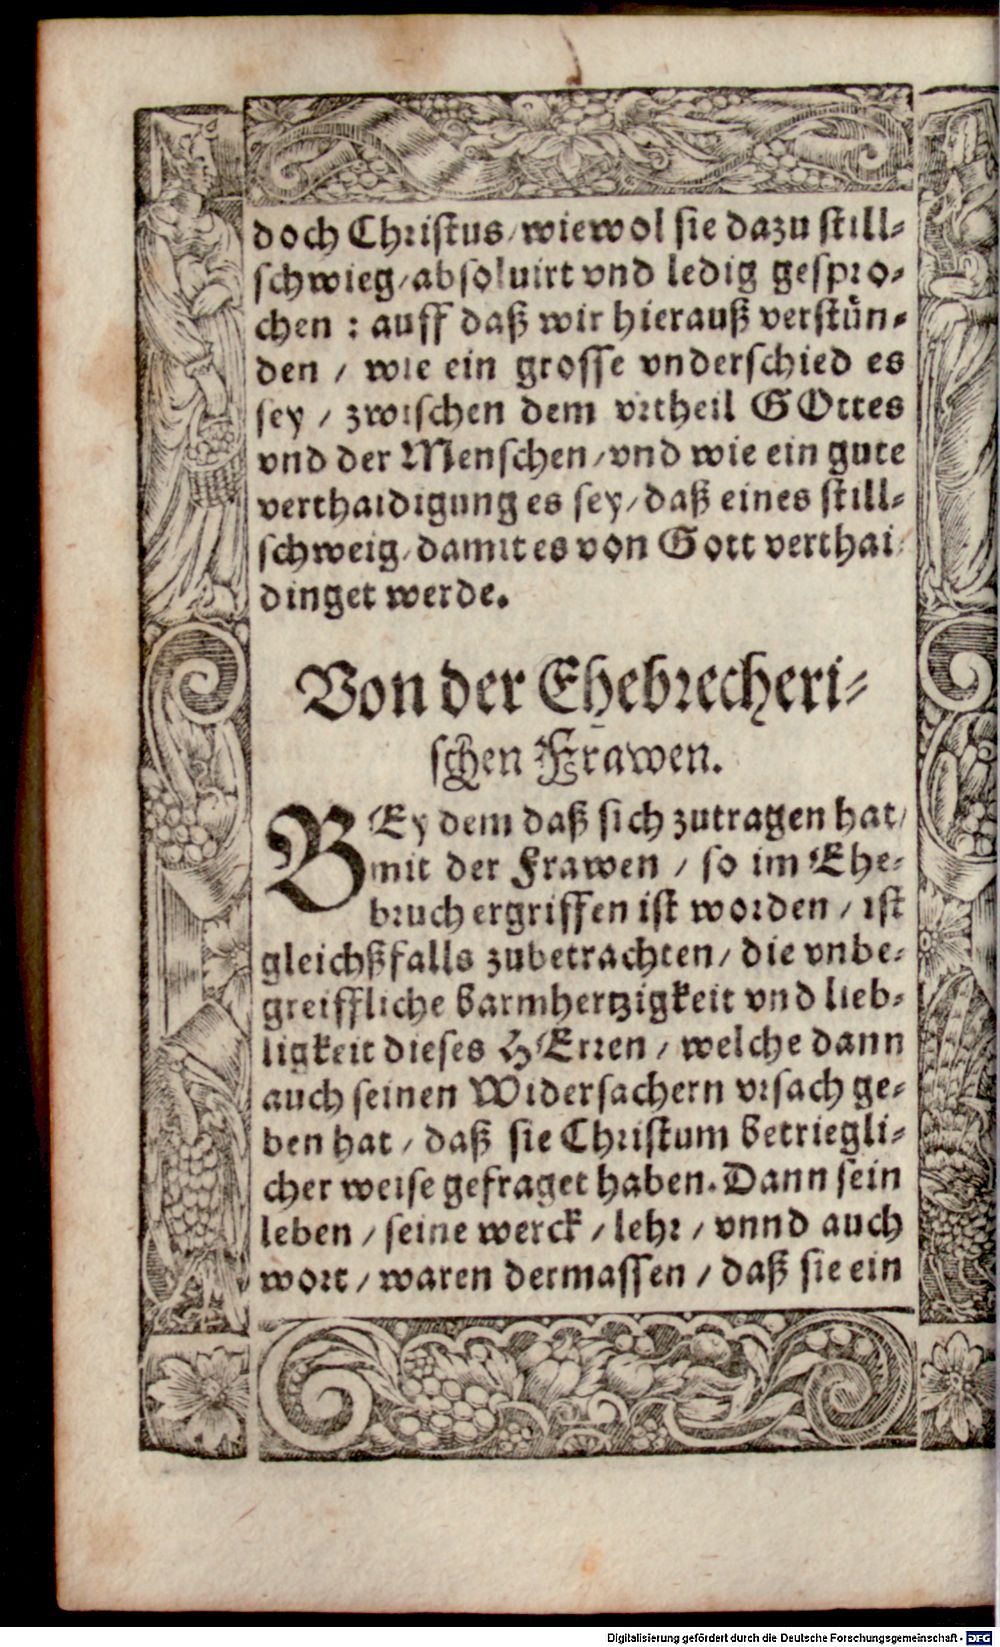 doch Christus/wiewol sie dazu still-
schwieg/absoluirt vnd ledig gespro-
chen : auff daß wir hierauß verstün-
den / wie ein grosse vnderschied es
sey / zwischen dem vrtheil GOttes
vnd der Menschen/vnd wie ein gute
verthaidigung es sey/daß eines still-
schweig/damit es von Gott verthai-
dinget werde.
Von der Ehebrecheri-
schen Frawen.
BEy dem daß sich zutragen hat/
mit der Frawen / so im Ehe-
bruch ergriffen ist worden / ist
gleichßfalls zubetrachten/ die vnbe-
greiffliche barmhertzigkeit vnd lieb-
ligkeit dieses HErren / welche dann
auch seinen Widersachern vrsach ge-
ben hat / daß sie Christum betriegli-
cher weise gefraget haben. Dann sein
leben / seine werck / lehr / vnnd auch
wort / waren dermassen / daß sie ein
Digitalisierung gefördert durch die Deutsche Forschungsgemeinschaft - DFG